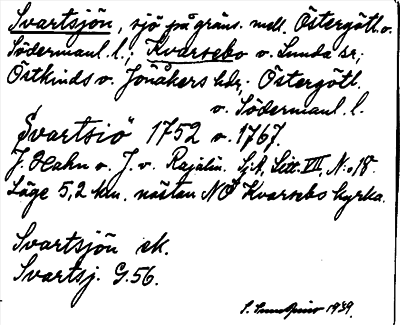 Svartsjön, sjö på gräns. mell. Östergötl. o.
Södermanl. l., Kvarsebo o. Lunda sr,
Östkinds o. Jönåkers hdr, Östergötl.
o. Södermanl. l.
Svartsiö 1752 o. 1767.
J. Hahn o. J. v. Rajalin. Sjk, Litt. VII, N:o 18.
Läge 5,2 km. nästan NO Kvarsebo kyrka.
Svartsjön ek.
Svartsj. G.56.
1939.